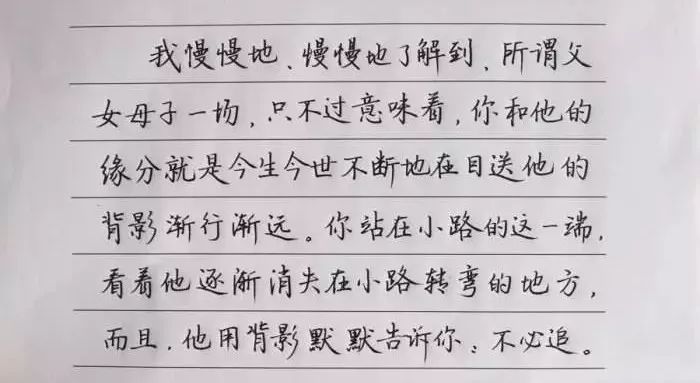 我慢慢地、慢慢地了解到、所谓父
女母子一场，只不过意味着，你和他的
缘分就是今生今世不断地在目送他的
背影渐行渐远。你站在小路的这一端，
看着他逐渐消失在小路转弯的地方，
而且，他用背影默默告诉你：不必追。